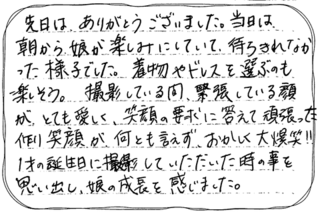 先日は、ありがとうございました。当日は、
朝から娘が楽しみにしていて、待ちきれなか
った様子でした。着物やドレスを選ぶのも
楽しそう。 撮影している間、緊張している顔
が、とても愛しく、笑顔の要求に答えて頑張った
作り笑顔が、何とも言えず、おかしく大爆笑!!
1才の誕生日に撮影していただいた時の事を
思い出し、娘の成長を感じました。